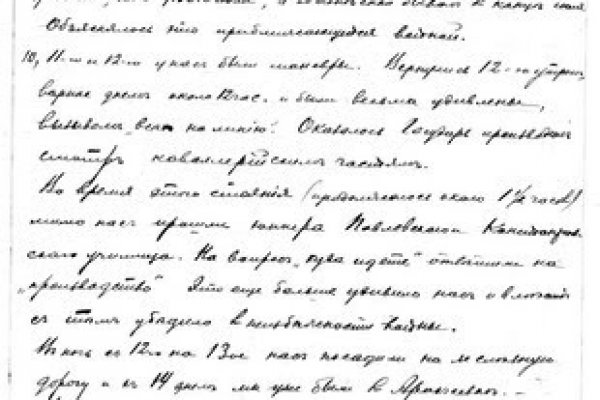 Объяснялось это приближающейся войной.
10, 11-го и 12-го у нас были маневры. Вернулись 12-го утром,
вернее днем около 12 час. и были весьма удивлены,
вызовом „всех на линию". Оказалось Государь производил
смотр кавалерийским частям.
Во время этого стояния (продолжалось около 1½ часов)
мимо нас прошли юнкера Павловского
училища. На вопрос „куда идете" ответили на
„производство" Это еще больше удивило нас и
с тем убедило в неизбежности войны.
В ночь с 12-го на 13-ое нас посадили на железную
дорогу и к 14 днем мы уже были в